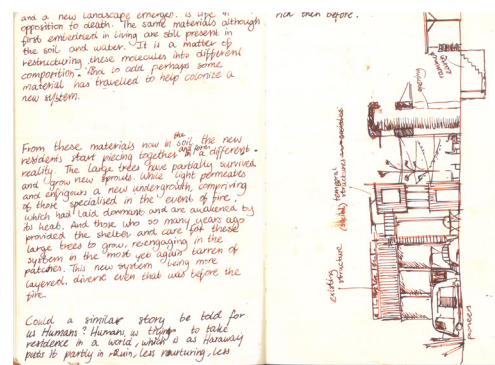 and a new landscape emerges. is life in
opposition to death. The same materials although
first embodied in living are still present in
the soil and water. It is a matter of
restructuring these molecules into different
composition. And to add perhaps some
material has travelled to help colonize a
new system.
From these materials now in the soil, the new
residents start piecing together a different
reality. The large trees have partially survived
and grow new sprouts. While light permeates
and enrigours a new undergrowth, comprising
of those specialised in the event of fire,
which had laid dormant and are awakened by
its heat. And those who so many years ago
provided the shelter and care for these
large trees to grow, re-engaging in the
system in the most yet again barren of
patches. This new system being more
layered, diverse even that was before the
fire.
Could a similar story be told for
us Humans? Humans, us trying to take
residence in a world, which is as Haraway
puts it partly in Ruin, less nurturing, less
rich then before.
existing
structure
temporal
structures
pioneers